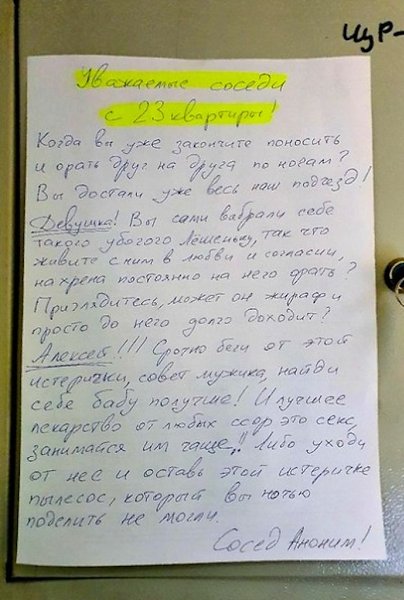 ЦУР-
Уважаемые соседи
с 23 квартиры!
Когда вы уже закончите поносить
и орать друг на друга по ночам?
Вы достали уже весь наш подъезд!
Девушка! Вы сами выбрали себе
такого убогого Лёшеньку, так что
живите с ним в любви и согласии,
нахрена постоянно на него орать?
Приглядитесь, может он жираф и
просто до него долго доходит?
Алексей!!! Срочно беги от этой
истерички, совет мужика, найди
себе бабу получше! И лучшее
лекарство от любых ссор это секс,
занимайся им чаще!! Либо уходи
от нее и оставь этой истеричке
пылесос, который вы ночью
поделить не могли.
Сосед Аноним!